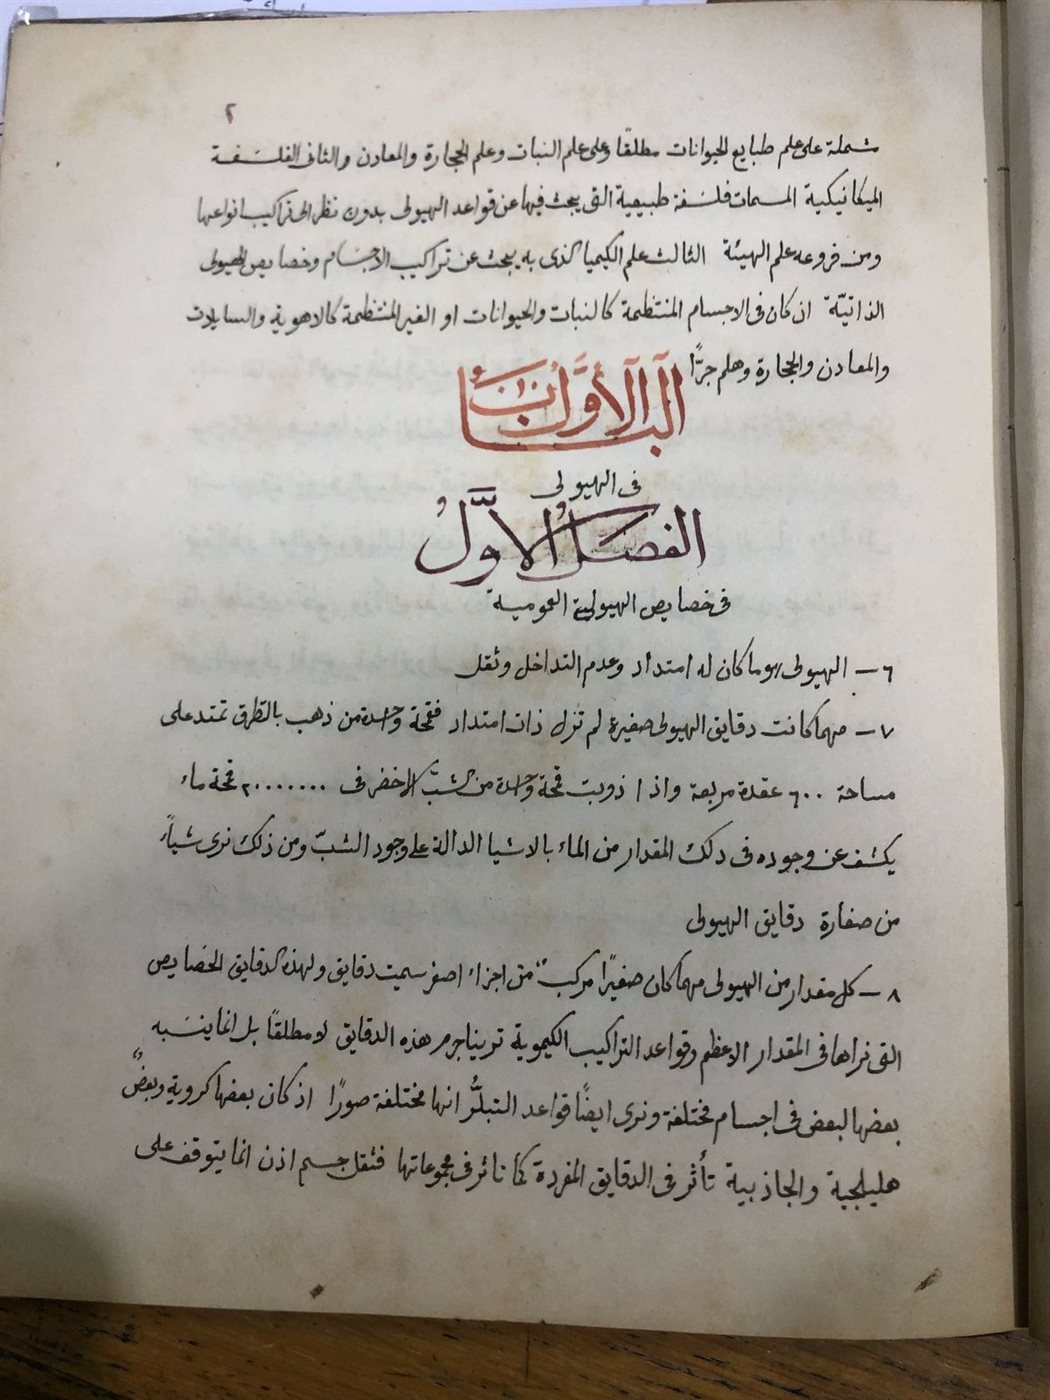 ٢
مشتملة على علم طبايع الحيوانات مطلقًا وعلى علم النبات وعلم الحجارة والمعادن والثانى الفلسفة
الميكانيكية المسمات فلسفة طبيعية التى يبحث فيها عن قواعد الهيولى بدون نظر الى تراكيب انواعها
ومن فروعه علم الهيئة الثالث علم الكيميا الذى به يبحث عن تراكيب الاجسام وخصايص الهيولى
الذاتيّة ان كان فى الاجسام المنتظمة كالنبات والحيوانات او الغير المنتظمة كالاهوية والسايلات
والمعادن والحجارة وهلم جرًّا
الباب الأوَّل
فى الهيولى
الفصل الاوَّل
فى خصايص الهيولية العمومية
٦ – الهيولى هو ما كان له امتداد وعدم التداخل وثقل
٧ – مهما كانت دقايق الهيولى صغيرة لم تزل ذات امتداد فقمحة واحدة من ذهب بالتطرق تمتد على
مساحة ٦٠٠ عقدة مربعة واذا ذوبت قمحة واحدة من الشبّ الاخضر فى ٢٠٠٠٠٠٠٠ قمحة ماء
يكشف عن وجوده فى ذلك المقدار من الماء بالاشيا الدالة على وجود الشبّ ومن ذلك نرى شياءً
من صغارة دقايق الهيولى
٨ – كل مقدار من الهيولى مهما كان صغيرًا مركبٌ من اجزاء اصغر سميت دقايق ولهذه الدقايق الخصايص
التى نراها فى المقدار الاعظم وقواعد التراكيب الكيموية ترينا جرم هذه الدقايق لا مطلقًا بل انما ينسَبه
بعضها لبعض فى اجسام مختلفة ونرى ايضًا قواعد التبلُّر انها مختلفة صورًا اذ كان بعضها كروية وبعضٌ
هليلجية والجاذبية تأثر فى الدقايق المفردة كما تاثر فى مجموعاتها فثقل جسم اذن انما يتوقف على